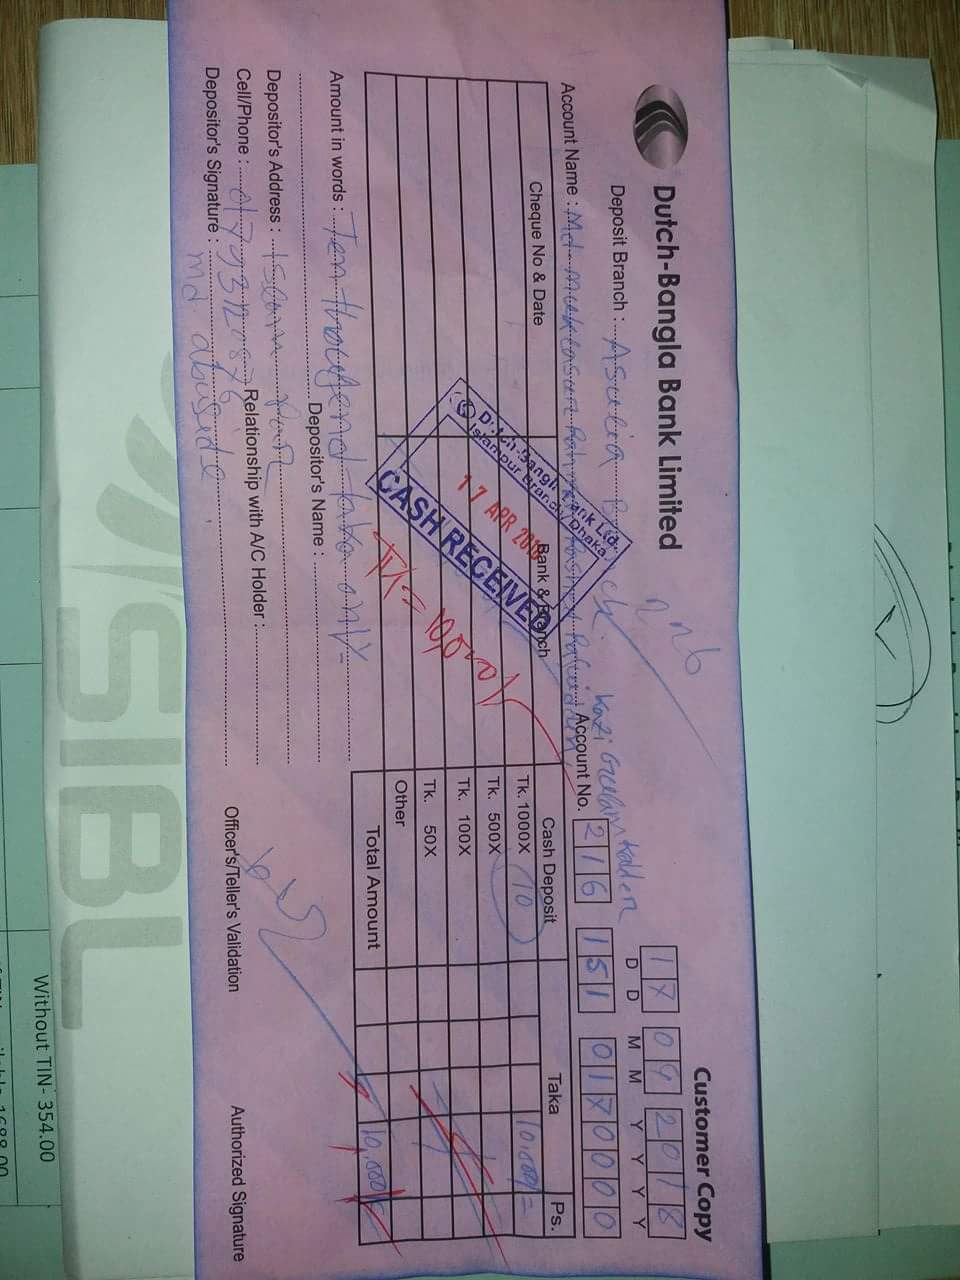 Dutch-Bangla Bank Limited
Customer Copy
Deposit Branch : Asulia
17 04 2018
D D M M Y Y Y Y
Account Name : Md.
Account No. 216 151 0170000
Kazi Gulam Kader
Cheque No & Date
Bank & Branch
Cash Deposit
Taka
Ps.
Tk. 1000X 10
10,000/=
Tk. 500X
Tk. 100X
Tk. 50X
Other
Total Amount
10,000/=
Dutch-Bangla Bank Ltd.
Islampur Branch, Dhaka.
17 APR 2018
CASH RECEIVED
TK= 10,000/
Amount in words : Ten thousend taka only-
Depositor's Name :
Depositor's Address : Islam Pur
Cell/Phone :
Relationship with A/C Holder :
Depositor's Signature : md.
Officer's/Teller's Validation
Authorized Signature
SIBL
Without TIN- 354.00